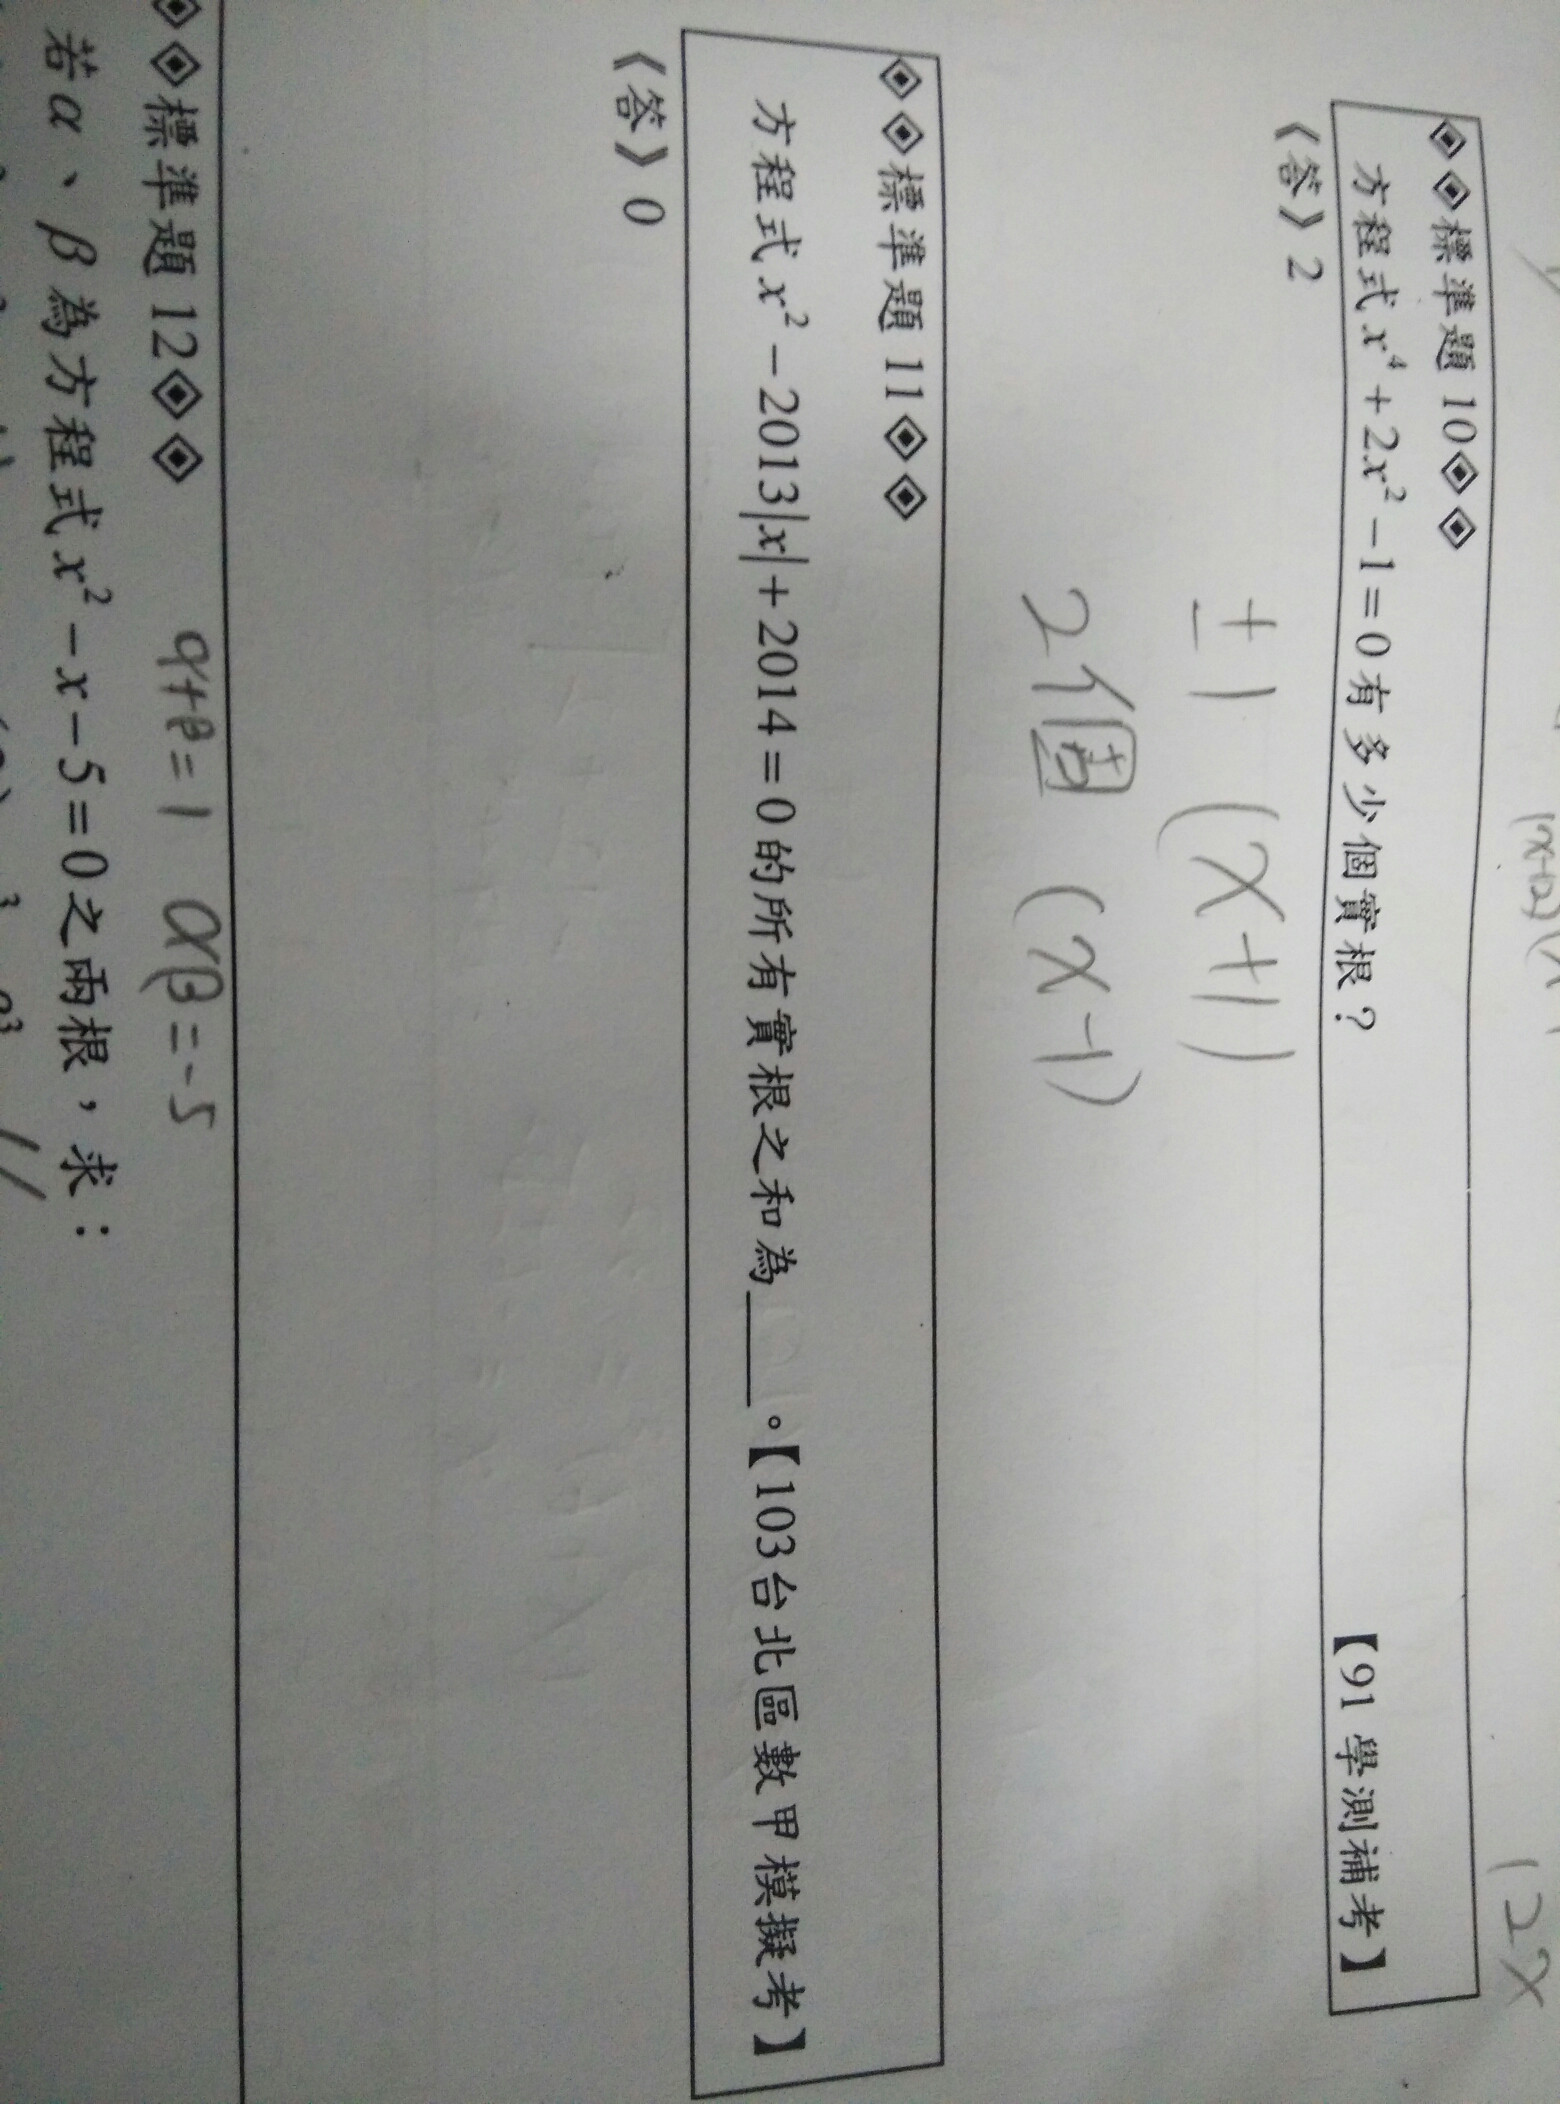 12x
◈◈標準題 10◈◈
方程式 x⁴+2x²−1=0 有多少個實根？ 【91 學測補考】
《答》2
±1 (x+1)
2個 (x-1)
◈◈標準題 11◈◈
方程式 x²−2013|x|+2014=0 的所有實根之和為____。【103 台北區數甲模擬考】
《答》0
◈◈標準題 12◈◈ α+β=1 αβ=-5
若 α、β 為方程式 x²−x−5=0 之兩根，求：